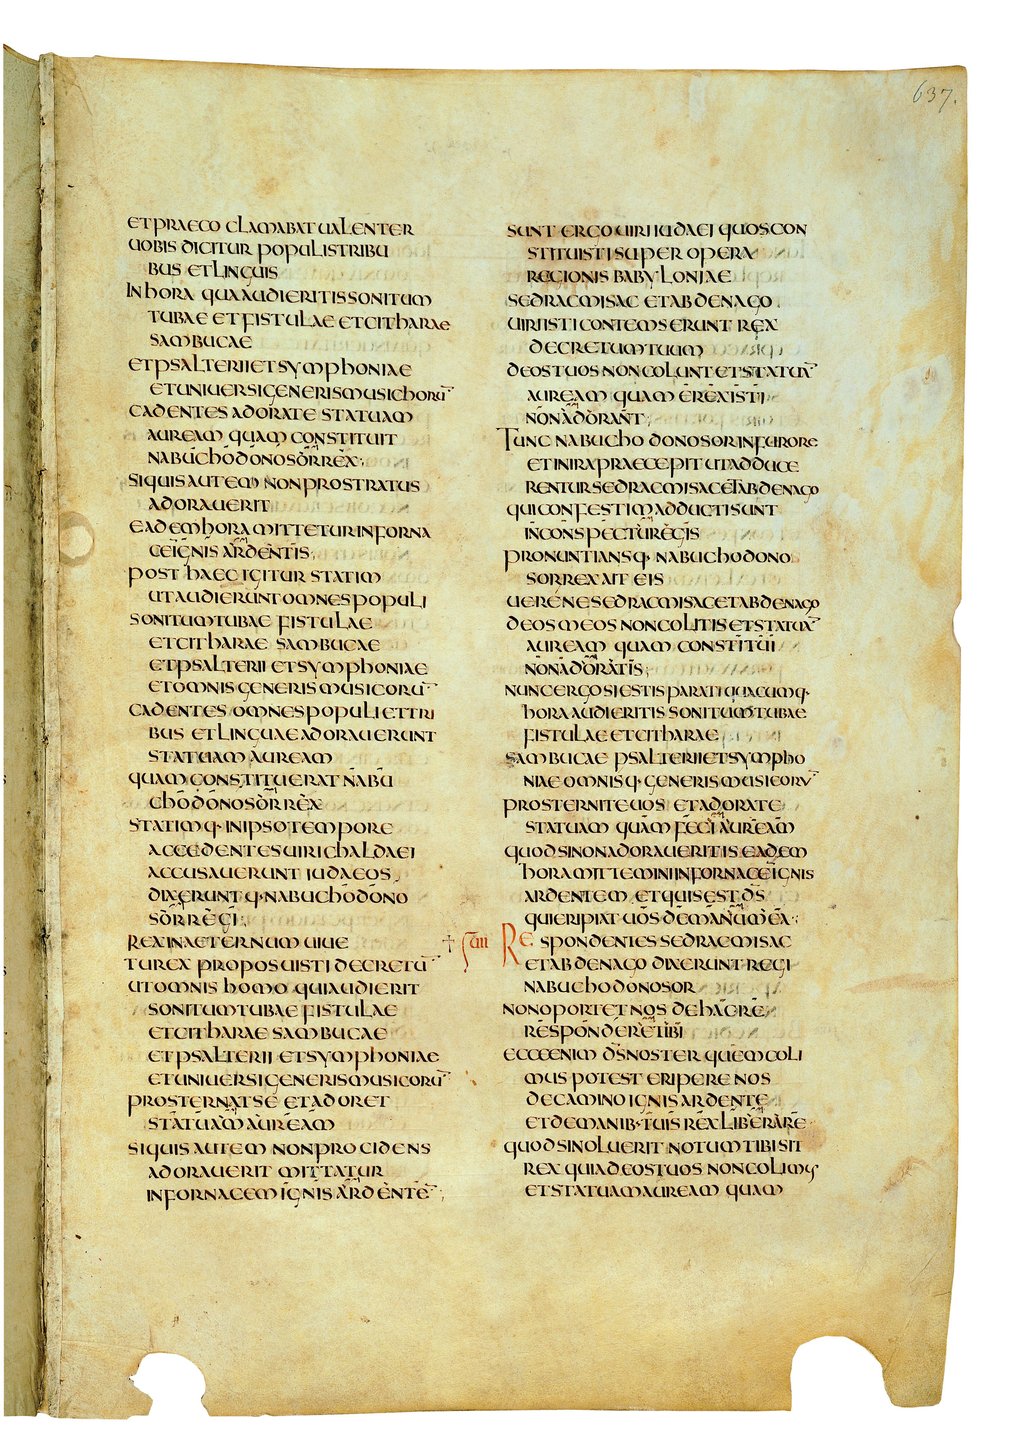 637.
ET PRAECO CLAMABAT UALENTER
UOBIS DICITUR POPULIS TRIBU
BUS ET LINGUIS
IN HORA QUA AUDIERITIS SONITUM
TUBAE ET FISTULAE ET CITHARAE
SAMBUCAE
ET PSALTERII ET SYMPHONIAE
ET UNIUERSI GENERIS MUSICHORŪ
CADENTES ADORATE STATUAM
AUREAM QUAM CONSTITUIT
NABUCHODONOSOR REX
SI QUIS AUTEM NON PROSTRATUS
ADORAUERIT
EADEM HORA MITTETUR IN FORNA
CE IGNIS ARDENTIS
POST HAEC IGITUR STATIM
UT AUDIERUNT OMNES POPULI
SONITUM TUBAE FISTULAE
ET CITHARAE SAMBUCAE
ET PSALTERII ET SYMPHONIAE
ET OMNIS GENERIS MUSICORŪ
CADENTES OMNES POPULI ET TRI
BUS ET LINGUAE ADORAUERUNT
STATUAM AUREAM
QUAM CONSTITUERAT NABU
CHODONOSOR REX
STATIMQ· IN IPSO TEMPORE
ACCEDENTES UIRI CHALDAEI
ACCUSAUERUNT IUDAEOS
DIXERUNTQ· NABUCHODONO
SOR REGI
REX IN AETERNUM UIUE
TU REX PROPOSUISTI DECRETŪ
UT OMNIS HOMO QUI AUDIERIT
SONITUM TUBAE FISTULAE
ET CITHARAE SAMBUCAE
ET PSALTERII ET SYMPHONIAE
ET UNIUERSI GENERIS MUSICORŪ
PROSTERNAT SE ET ADORET
STATUAM AUREAM
SI QUIS AUTEM NON PROCIDENS
ADORAUERIT MITTATUR
IN FORNACEM IGNIS ARDENTĒ
SUNT ERGO UIRI IUDAEI QUOS CON
STITUISTI SUPER OPERA
REGIONIS BABYLONIAE
SEDRAC MISAC ET ABDENAGO
UIRI ISTI CONTEMSERUNT REX
DECRETUM TUUM
DEOS TUOS NON COLUNT ET STATUĀ
AUREAM QUAM EREXISTI
NON ADORANT
TUNC NABUCHODONOSOR IN FURORE
ET IN IRA PRAECEPIT UT ADDUCE
RENTUR SEDRAC MISAC ET ABDENAGO
QUI CONFESTIM ADDUCTI SUNT
IN CONSPECTU REGIS
PRONUNTIANSQ· NABUCHODONO
SOR REX AIT EIS
UERE NE SEDRAC MISAC ET ABDENAGO
DEOS MEOS NON COLITIS ET STATUĀ
AUREAM QUAM CONSTITUI
NON ADORATIS
NUNC ERGO SI ESTIS PARATI QUACUMQ·
HORA AUDIERITIS SONITUM TUBAE
FISTULAE ET CITHARAE
SAMBUCAE PSALTERII ET SYMPHO
NIAE OMNISQ· GENERIS MUSICORŪ
PROSTERNITE UOS ET ADORATE
STATUAM QUAM FECI AUREAM
QUOD SI NON ADORAUERITIS EADEM
HORA MITTEMINI IN FORNACE IGNIS
ARDENTEM ET QUIS EST D̄S
QUI ERIPIAT UOS DE MANU MEA
RESPONDENTES SEDRAC MISAC
ET ABDENAGO DIXERUNT REGI
NABUCHODONOSOR
NON OPORTET NOS DE HAC RE
RESPONDERE TIBI
ECCE ENIM D̄S NOSTER QUEM COLI
MUS POTEST ERIPERE NOS
DE CAMINO IGNIS ARDENTE
ET DE MANIB· TUIS REX LIBERARE
QUOD SI NOLUERIT NOTUM TIBI SIT
REX QUIA DEOS TUOS NON COLIMUS
ET STATUAM AUREAM QUAM